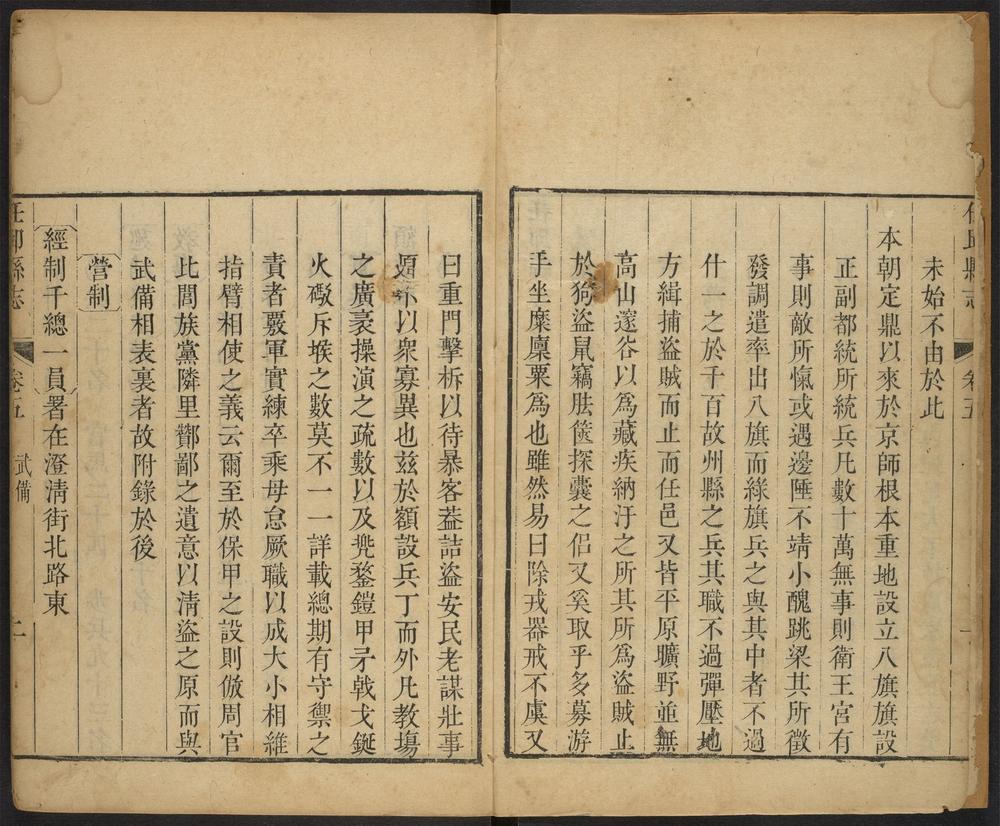 任丘縣志
卷五
一
未始不由於此
本朝定鼎以來於京師根本重地設立八旗旗設
正副都統所統兵凡數十萬無事則衛王宮有
事則敵所愾或遇邊陲不靖小醜跳梁其所徵
發調遣率出八旗而綠旗兵之與其中者不過
什一之於千百故州縣之兵其職不過彈壓地
方緝捕盜賊而止而任邑又皆平原曠野並無
高山邃谷以為藏疾納汙之所其所為盜賊止
於狗盜鼠竊胠篋探囊之侣又奚取乎多募游
手坐糜廩粟為也雖然易曰除戎器戒不虞又
曰重門擊柝以待暴客葢詰盜安民老謀壯事
不以衆寡異也兹於額設兵丁而外凡教塲
之廣袤操演之疏數以及兠鍪鎧甲矛戟戈鋋
火礟斥堠之數莫不一一詳載總期有守禦之
責者覈軍實練卒乘毋怠厥職以成大小相維
指臂相使之義云爾至於保甲之設則倣周官
比閭族黨隣里酇鄙之遺意以清盜之原而與
武備相表裏者故附錄於後
營制
經制千總一員署在澄清街北路東
任邱縣志
卷五
武備
二